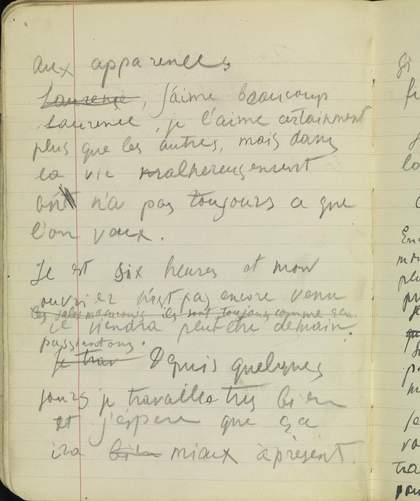 aux apparences
Laurence, j'aime beaucoup
Laurence, je l'aime certainement
plus que les autres, mais dans
la vie malhereusement
ont n'a pas toujours ce que
l'on vaux.
Je est six heures et mon
ouvrier n'est pas encore venu
ils sont toujours comme ça
il viendra peut être demain.
passiantons.
je trav Depuis quelques
jours je travaille tres bien
et j'éspere que ça
ira bien miaux àprésent.